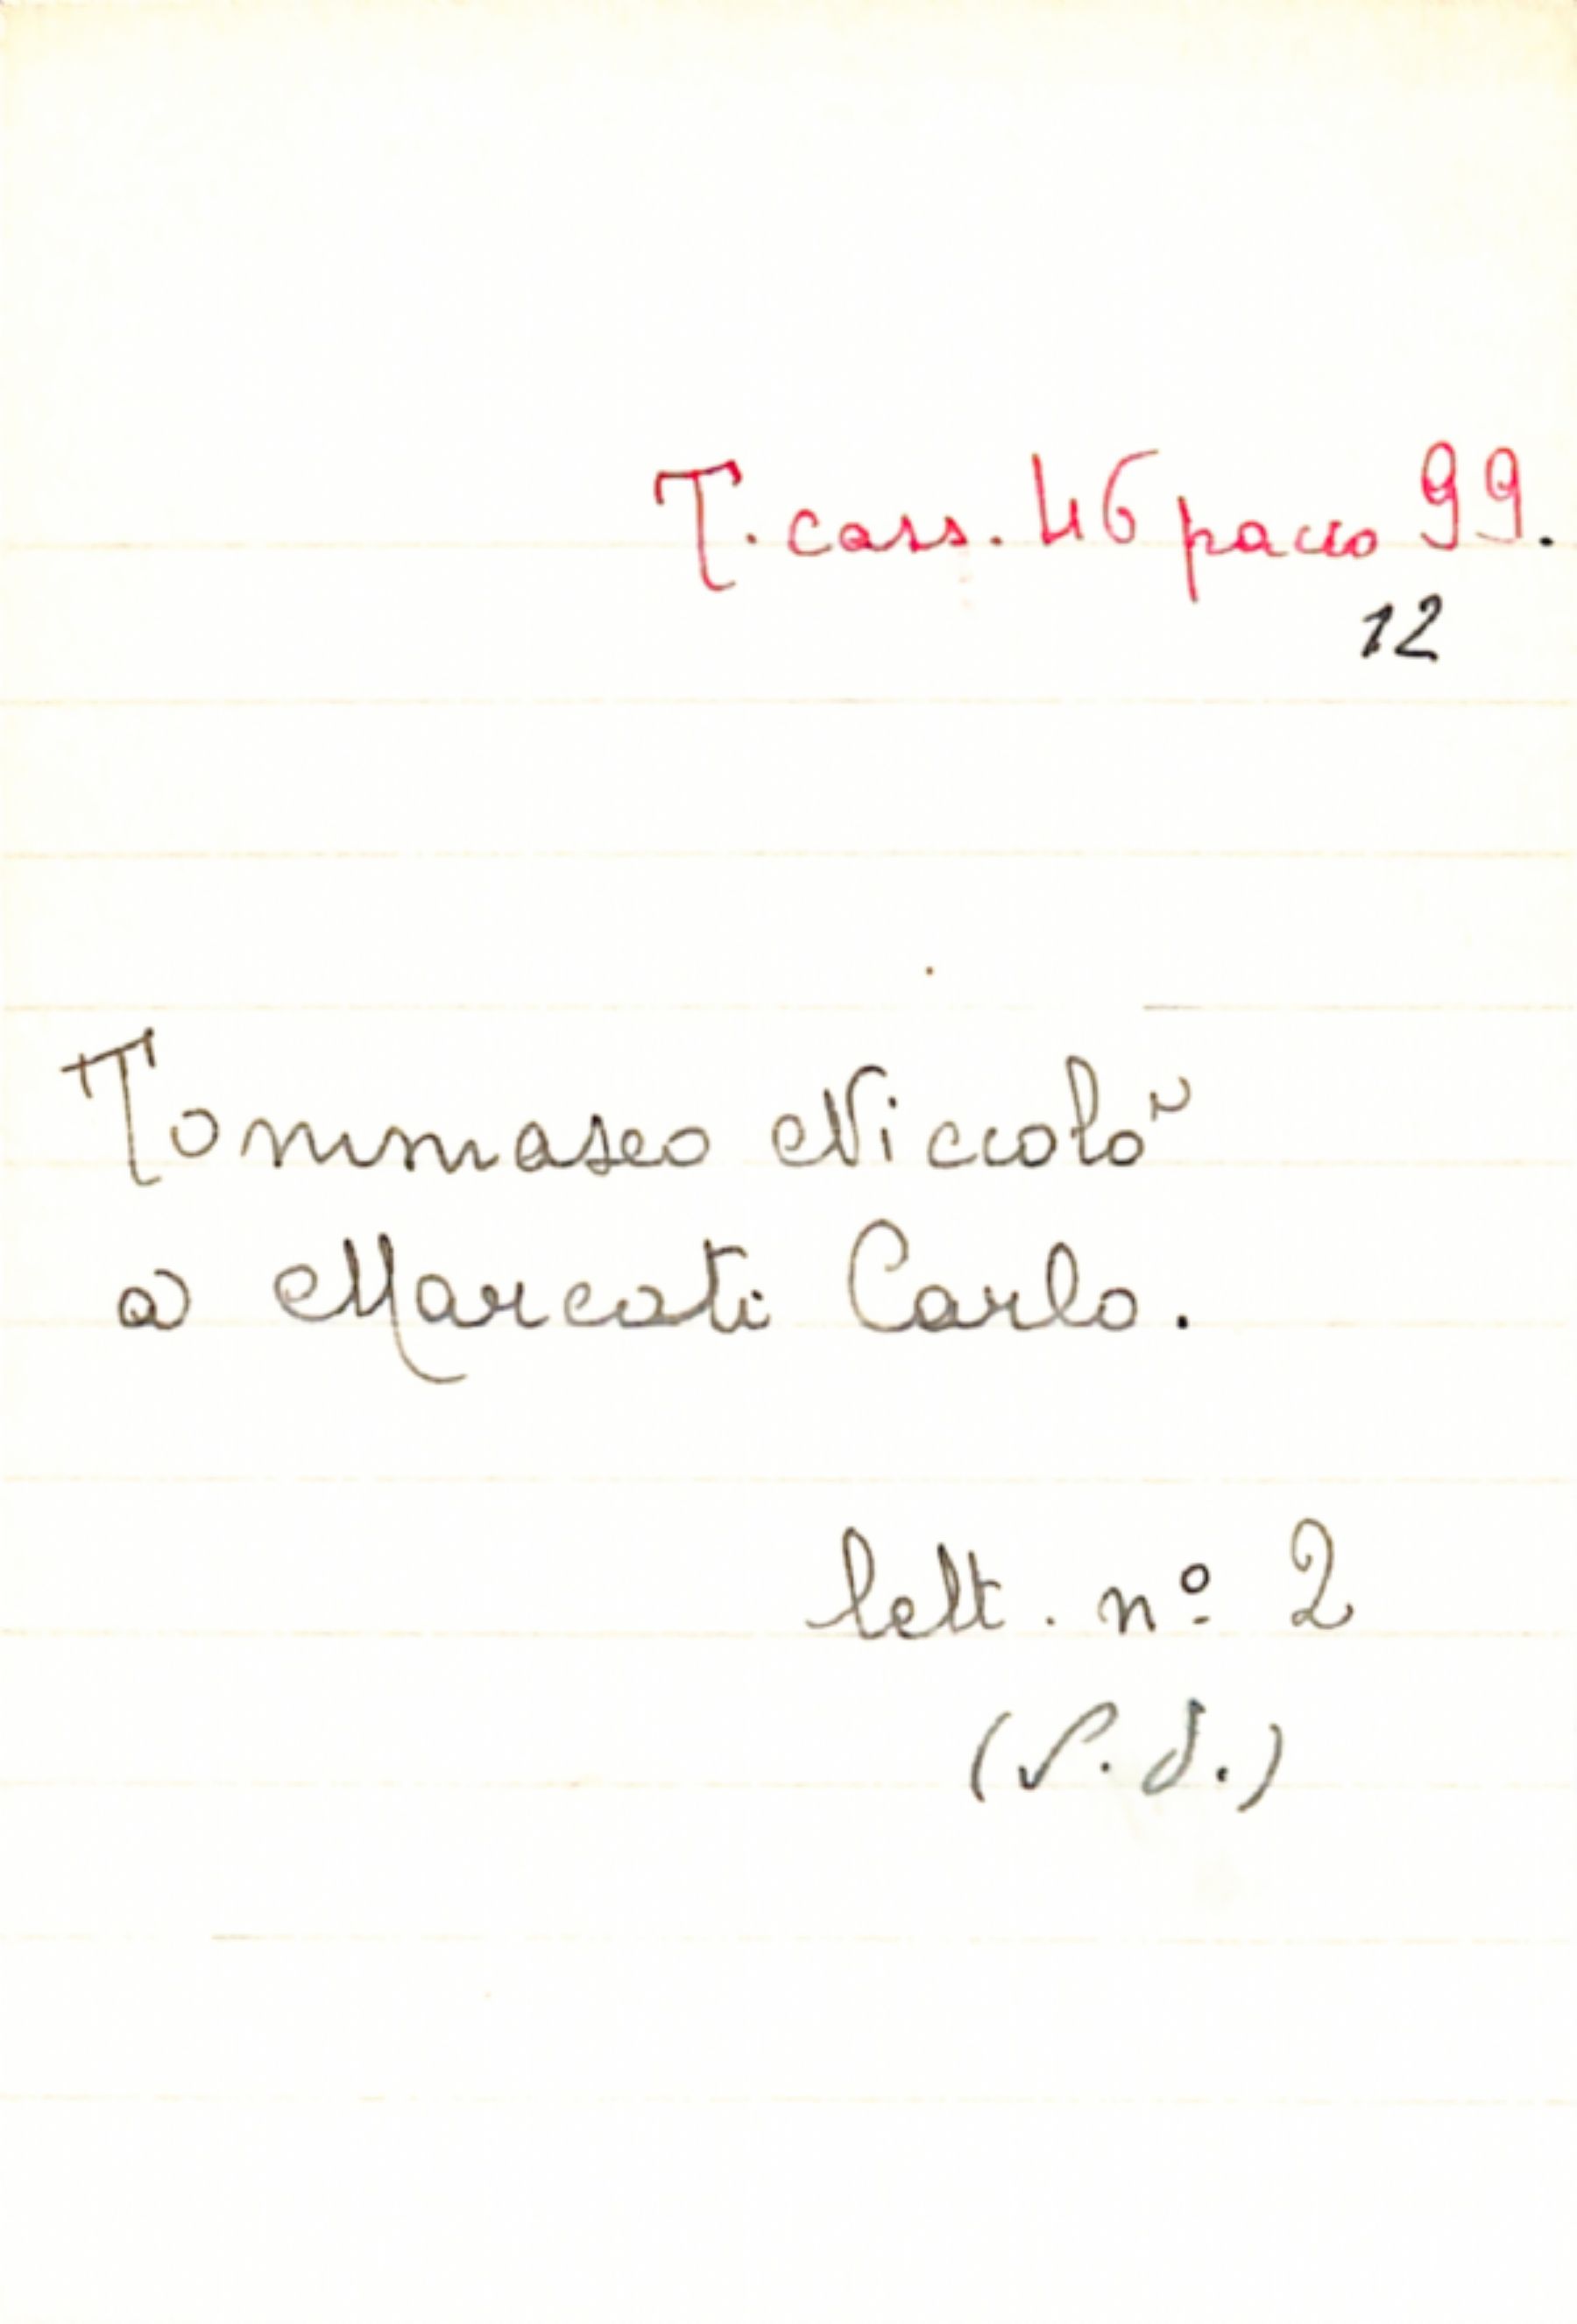 T. cass. 46 pacco 99.
12
Tommaseo Niccolò
a Marcoti Carlo.
lett. nº 2
(S. d.)